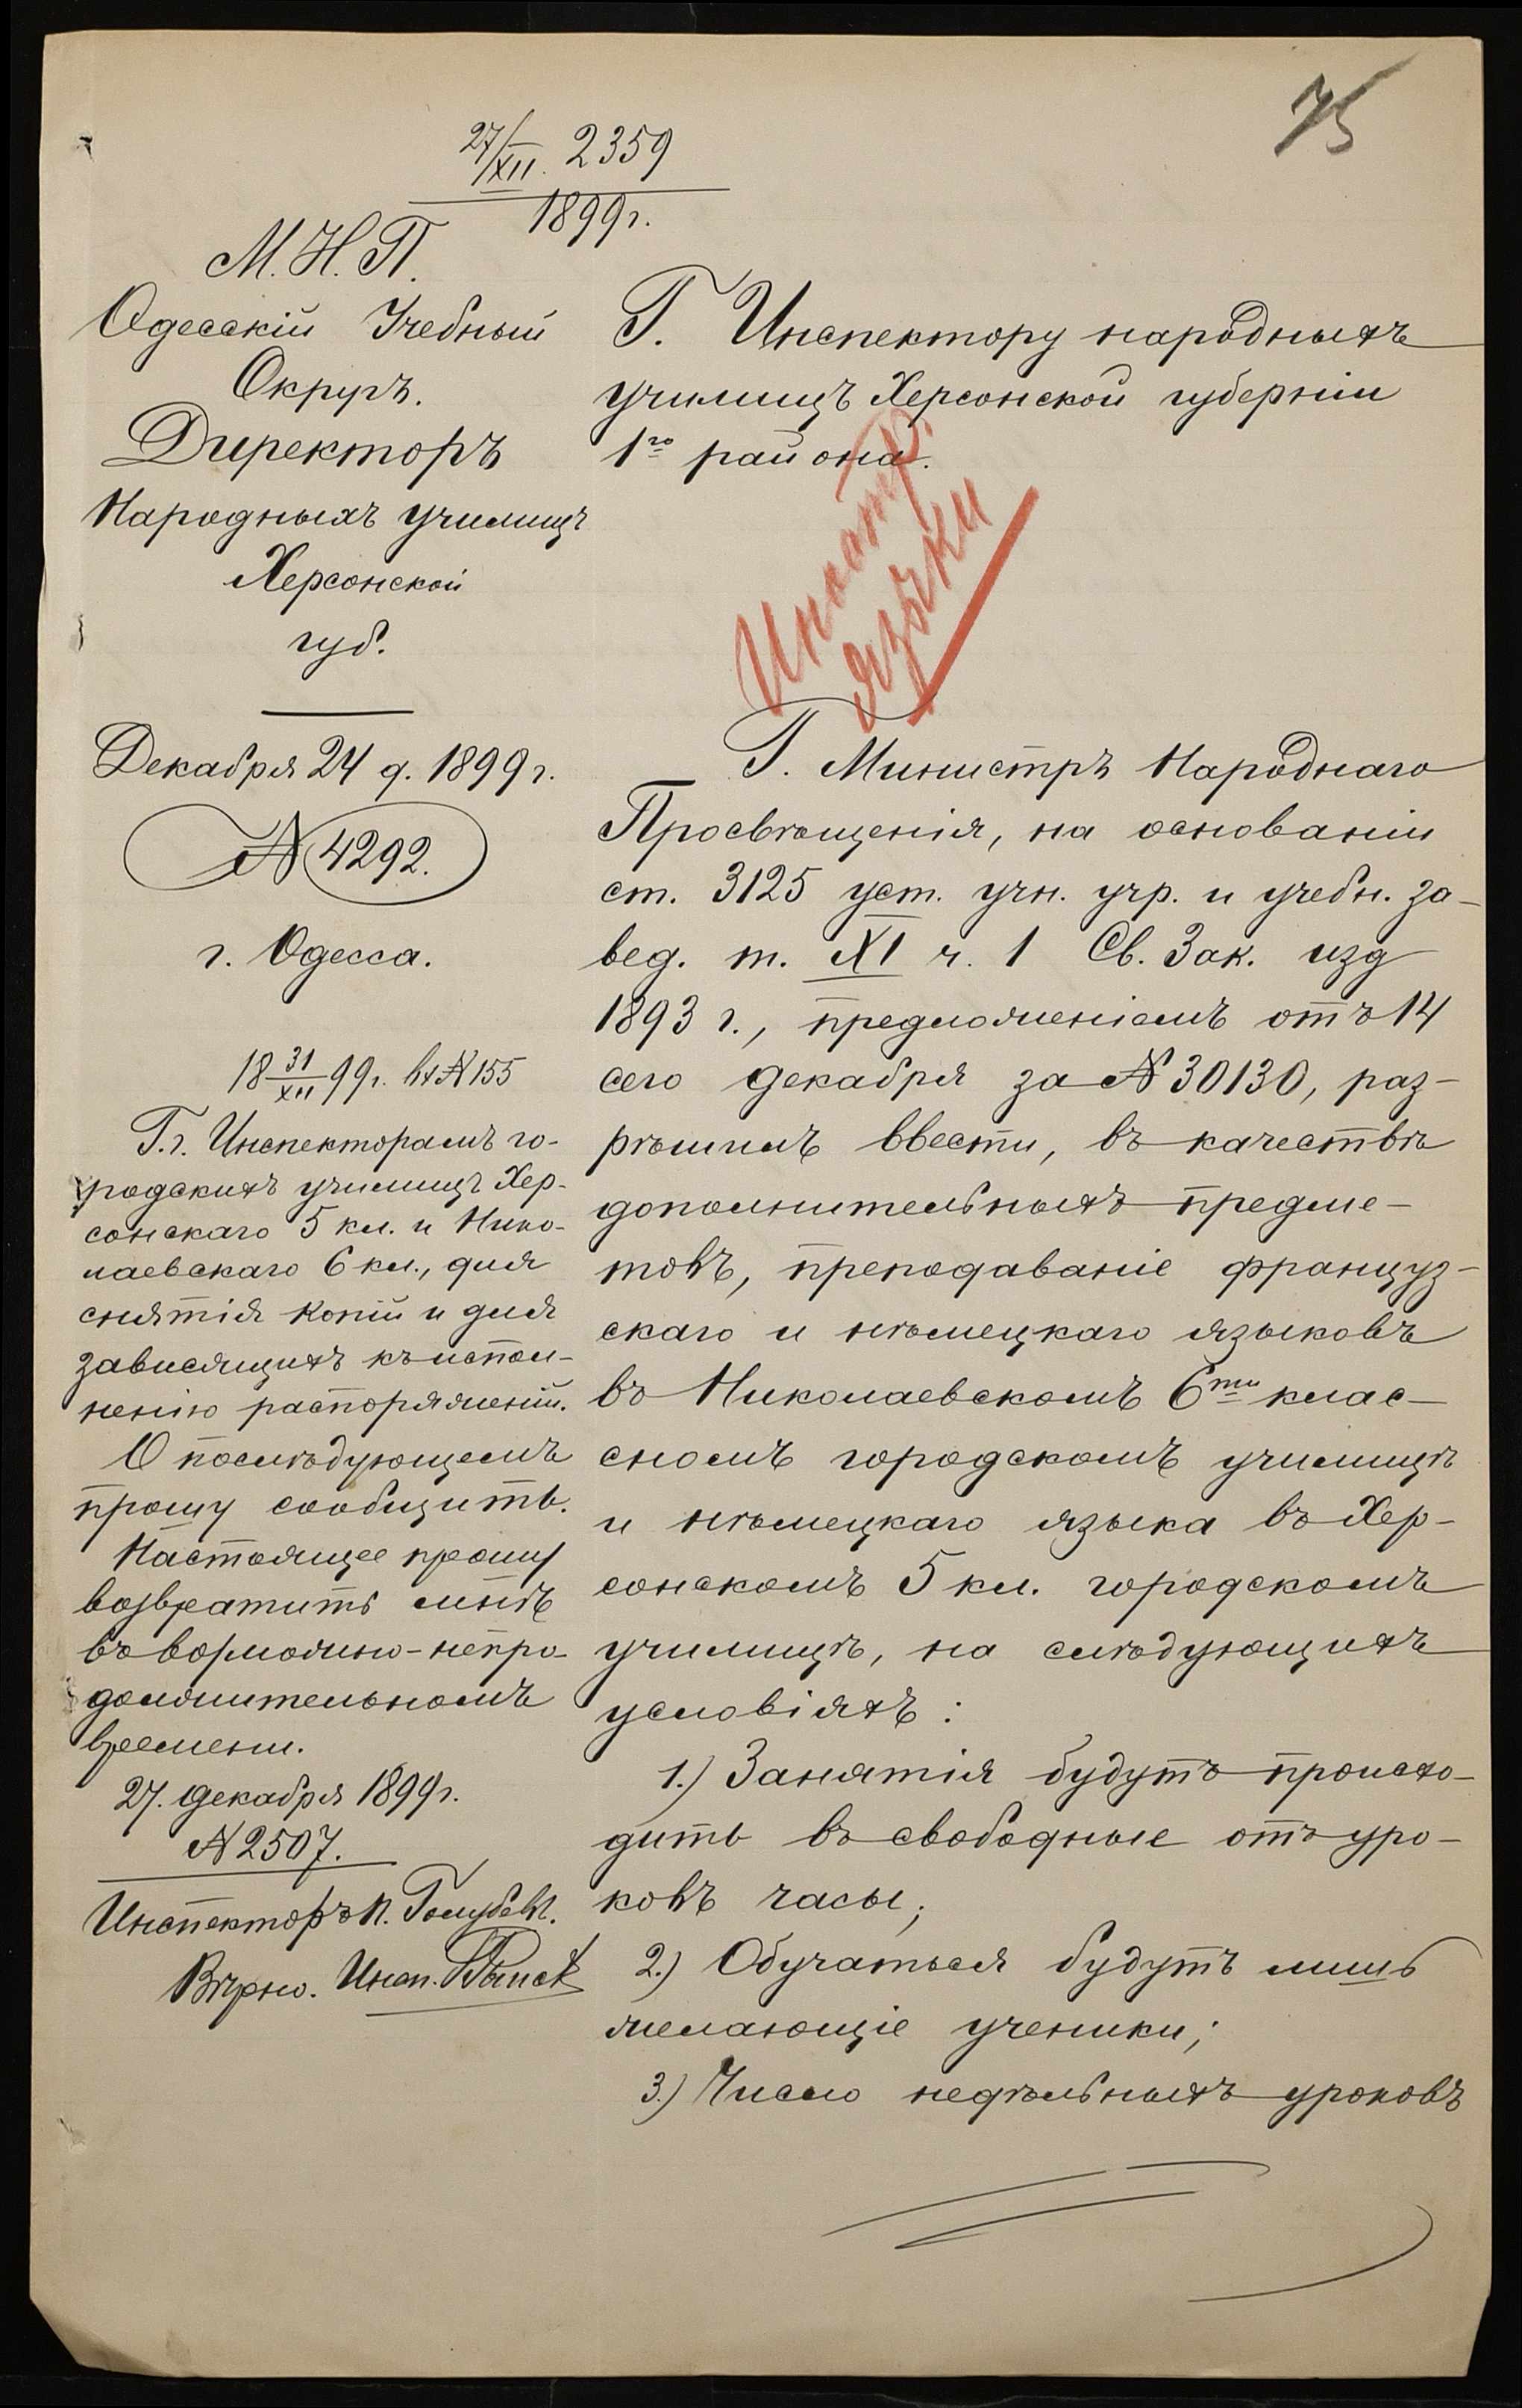 75
27/XII. 2359
1899 г.
М. Н. П.
Одесскій Учебный
Округъ.
Директоръ
Народныхъ училищъ
Херсонской
губ.
Декабря 24 д. 1899 г.
№ 4292.
г. Одесса.
18 31/XII 99 г. вх № 155
Г.г. Инспекторамъ го-
родскихъ училищъ Хер-
сонскаго 5 кл. и Нико-
лаевскаго 6 кл., для
снятія копій и для
зависящихъ къ испол-
ненію распоряженій.
О послѣдующемъ
прошу сообщить.
Настоящее прошу
возвратить мнѣ
въ возможно-непро-
должительномъ
времени.
27 декабря 1899 г.
№ 2507.
Инспекторъ П. Голубевъ.
Вѣрно. Инсп.
Г. Инспектору народныхъ
училищъ Херсонской губерніи
1го района.
Иностр.
языки
Г. Министръ Народнаго
Просвѣщенія, на основаніи
ст. 3125 уст. учн. учр. и учебн. за-
вед. т. XI ч. 1 Св. Зак. изд
1893 г., предложеніемъ отъ 14
сего декабря за № 30130, раз-
рѣшилъ ввести, въ качествѣ
дополнительныхъ предме-
товъ, преподаваніе француз-
скаго и нѣмецкаго языковъ
въ Николаевскомъ 6ти клас-
сномъ городскомъ училищѣ
и нѣмецкаго языка въ Хер-
сонскомъ 5 кл. городскомъ
училищѣ, на слѣдующихъ
условіяхъ:
1.) Занятія будутъ происхо-
дить въ свободные отъ уро-
ковъ часы;
2.) Обучаться будутъ лишь
желающіе ученики;
3.) Число недѣльныхъ уроковъ